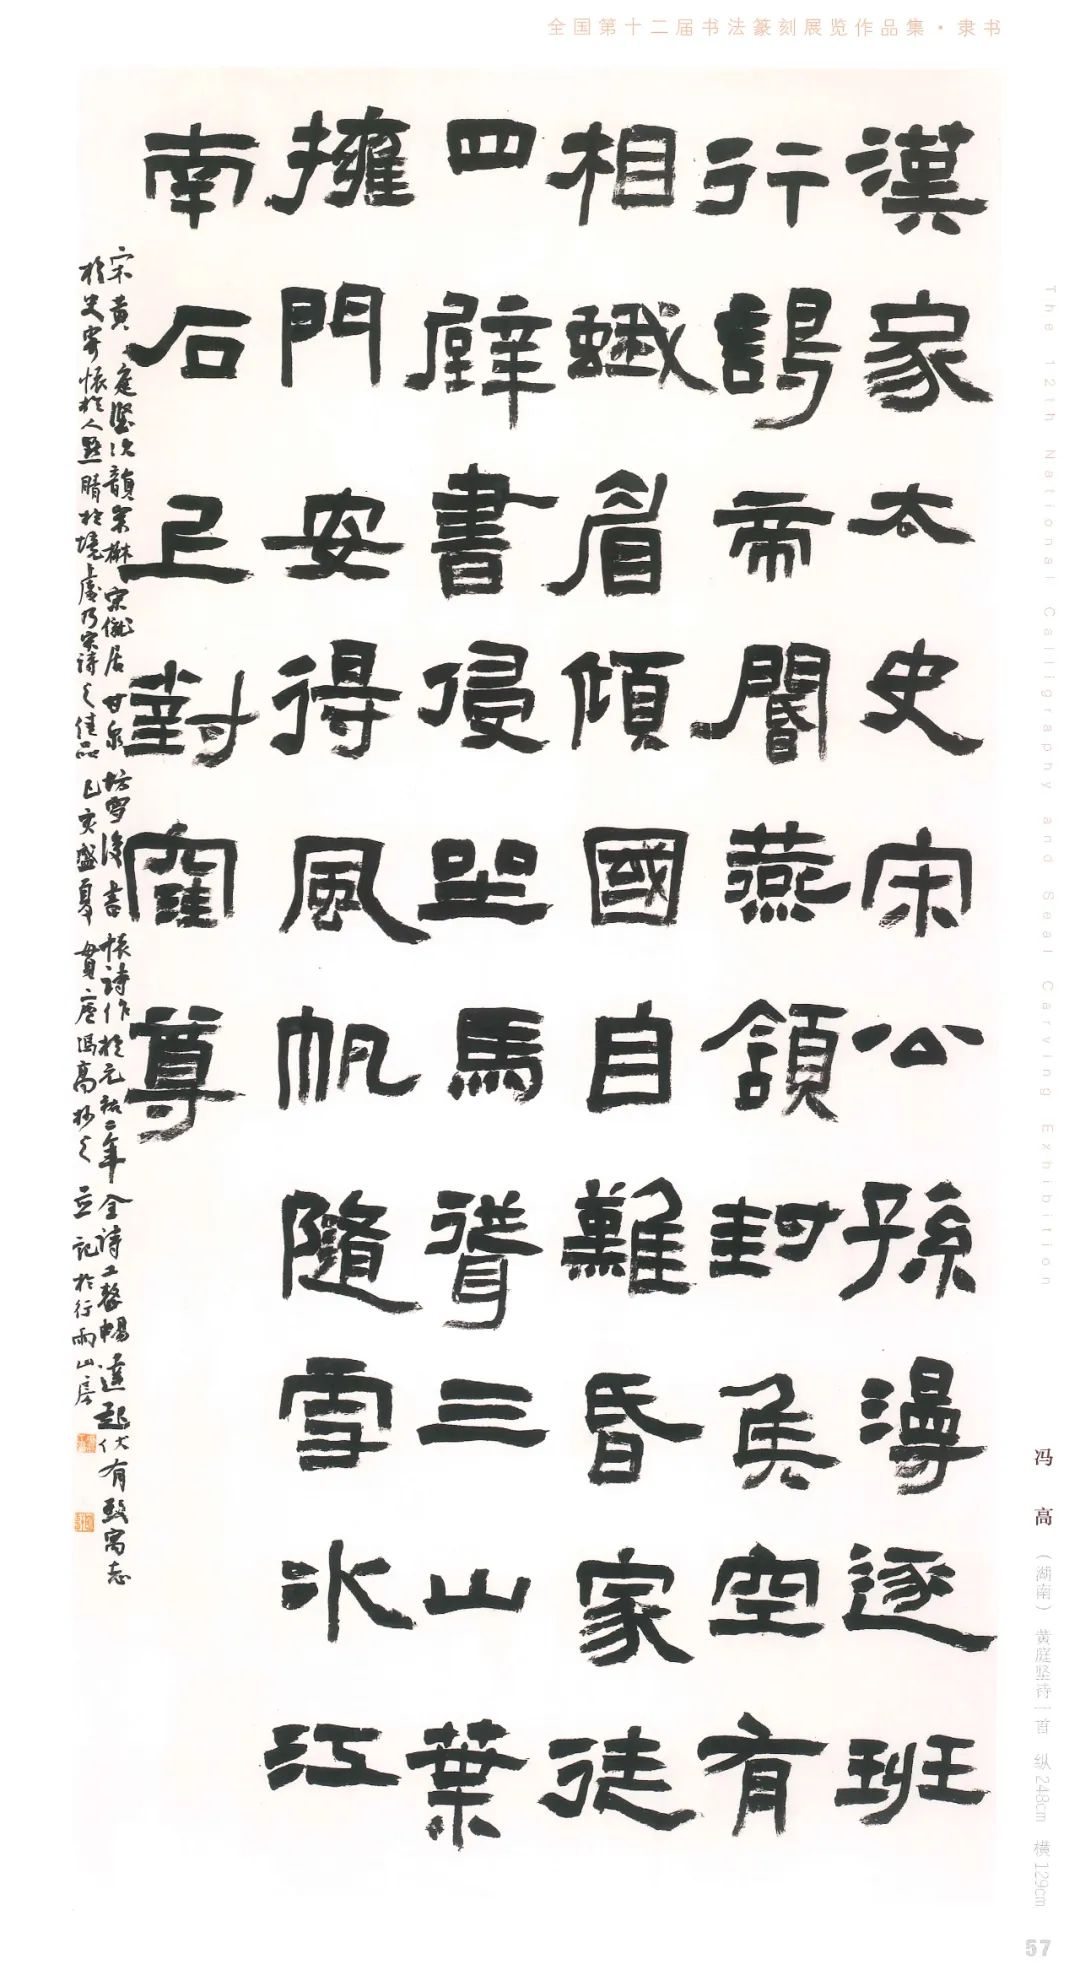 全国第十二届书法篆刻展览作品集·隶书
漢家太史宋公孫漫逐班
行謁帝閽燕頷封矦空有
相蛾眉傾國自難昏家徒
四壁書侵坐馬聳三山葉
擁門安得風帆隨雪水江
南石上對窪尊
宋黄庭堅次韻宋楙宗僦居甘泉坊雪後書懷詩作於元祐二年全詩工整暢達起伏有致寓志
於史寄懷於人點睛於境虛乃宋詩之佳品己亥盛夏貫廬馮高抄之並記於行雨山房
The 12th National Calligraphy and Seal Carving Exhibition
冯高（湖南）黄庭坚诗一首 纵248cm 横129cm
57